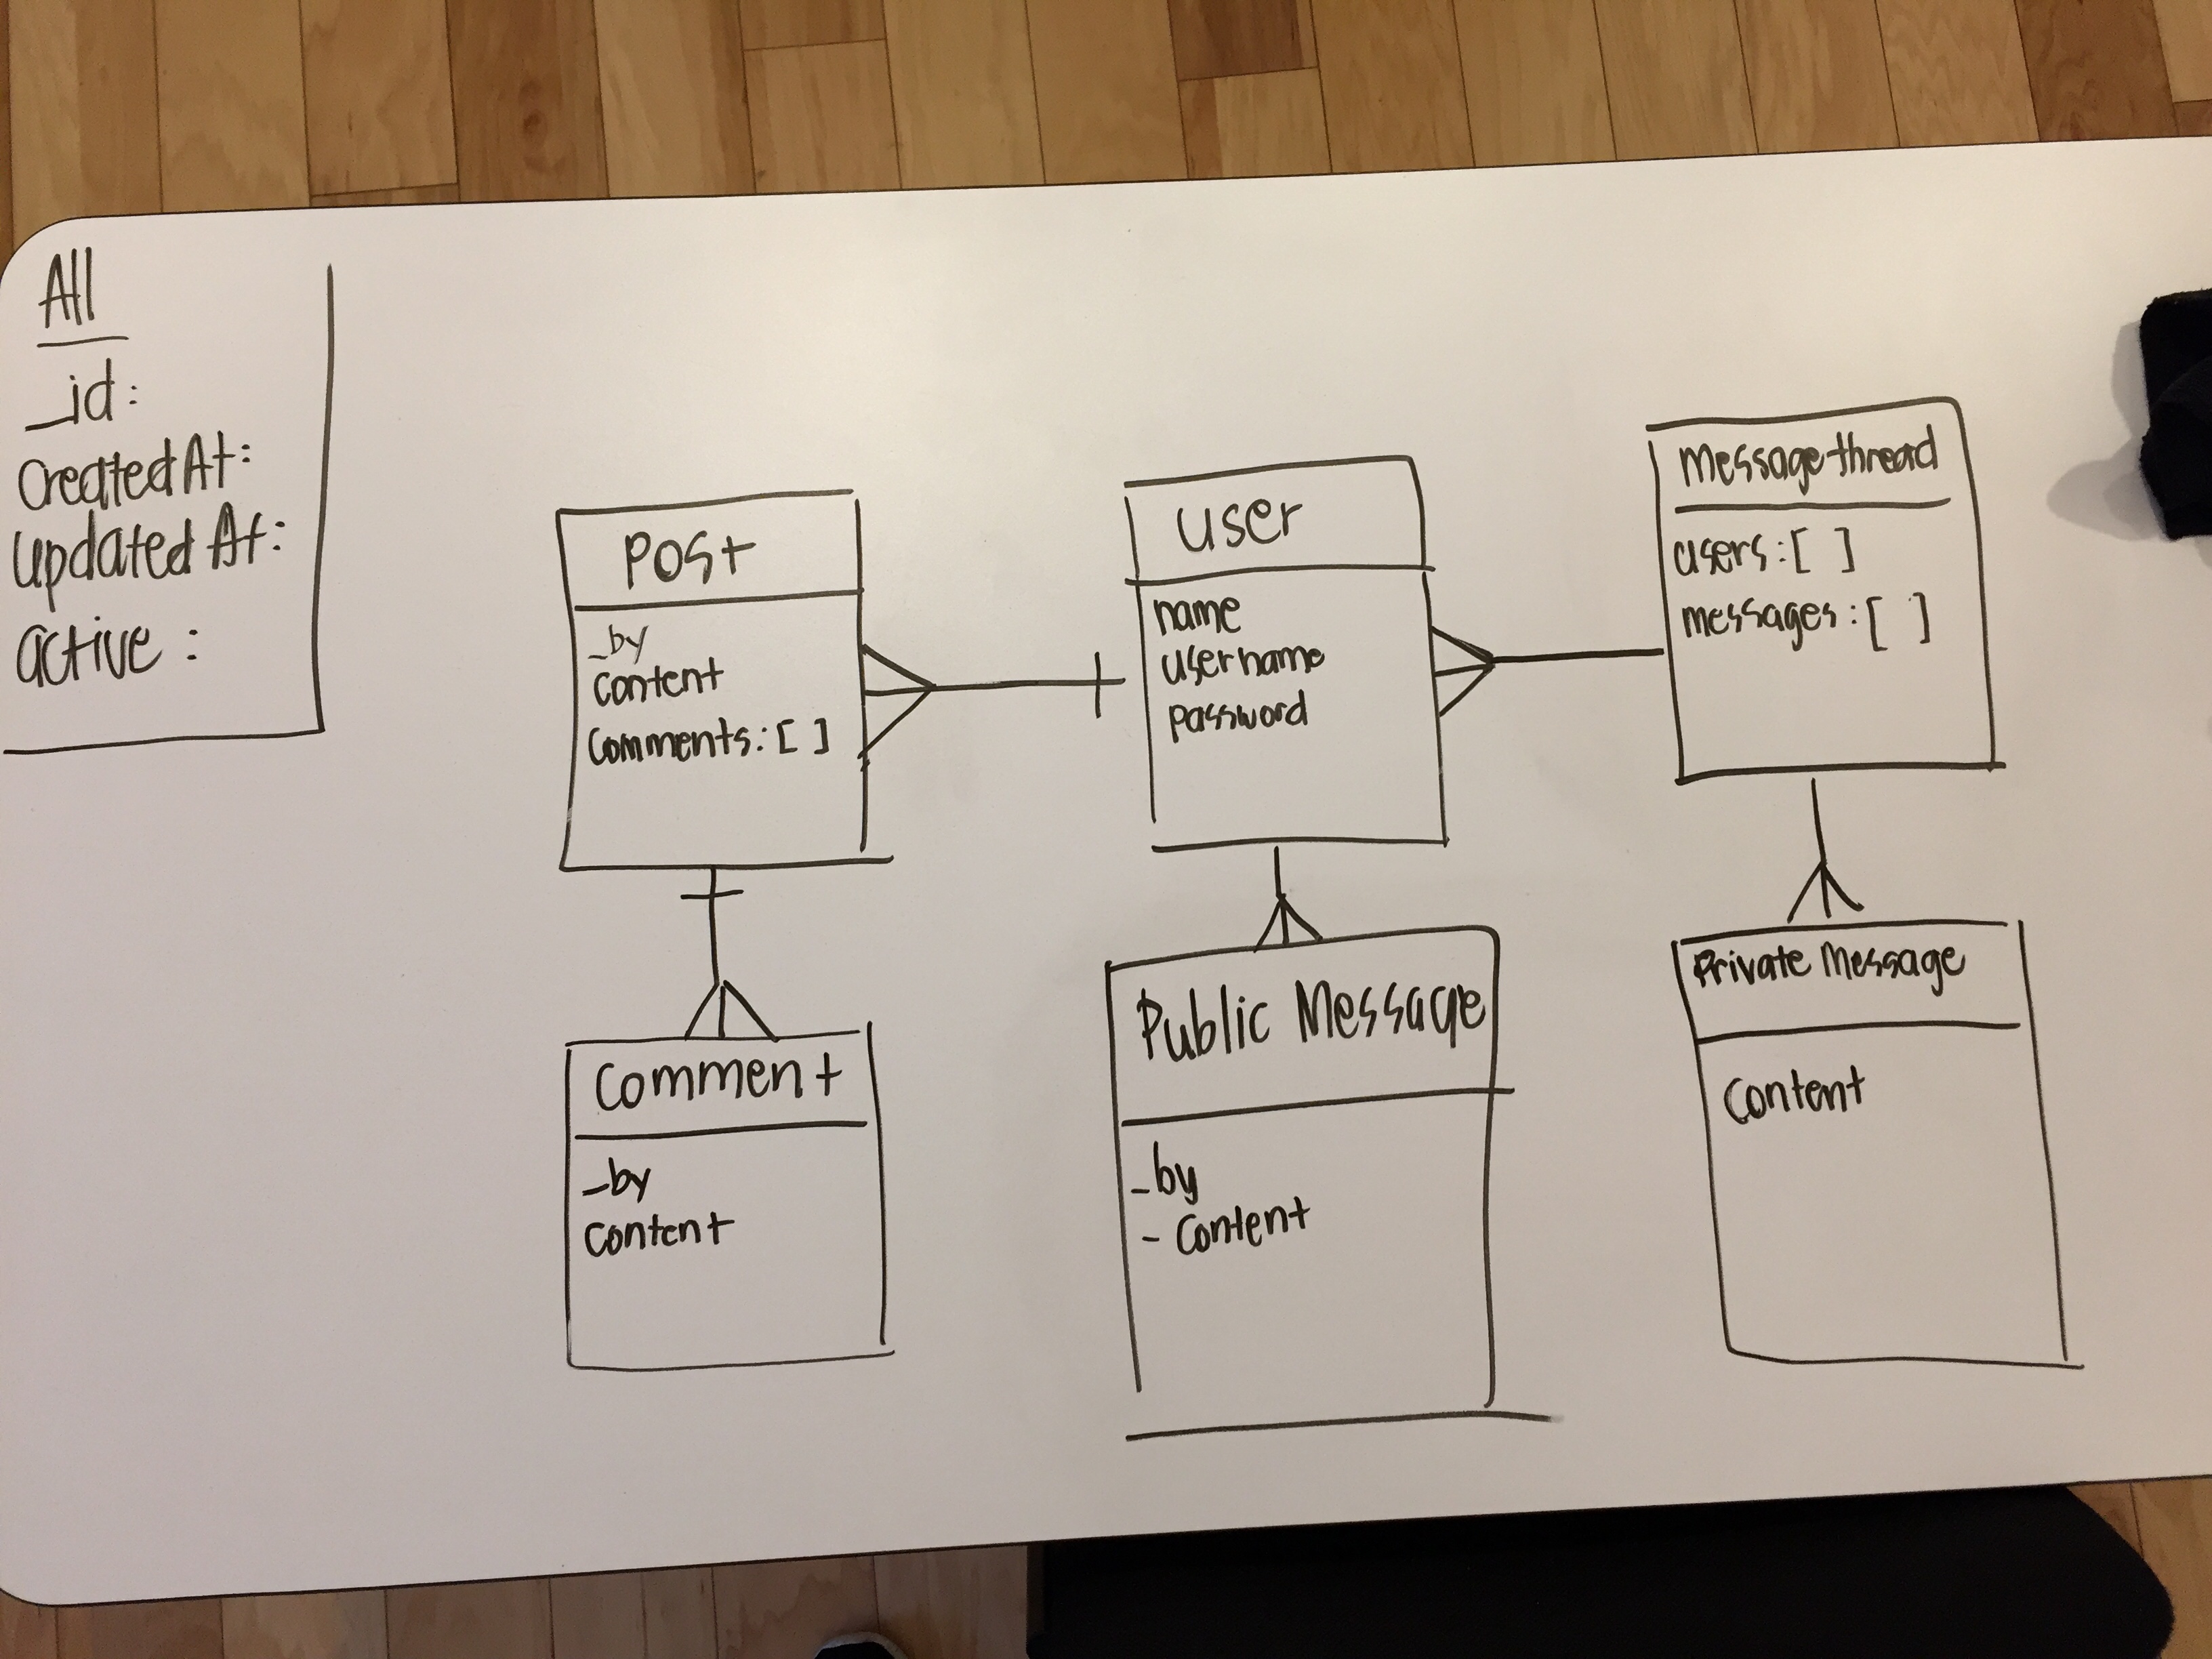 All
_id:
CreatedAt:
updatedAt:
active:
Post
_by
content
comments: [ ]
user
name
username
password
message thread
users: [ ]
messages: [ ]
Comment
_by
content
Public Message
_by
- Content
Private Message
Content